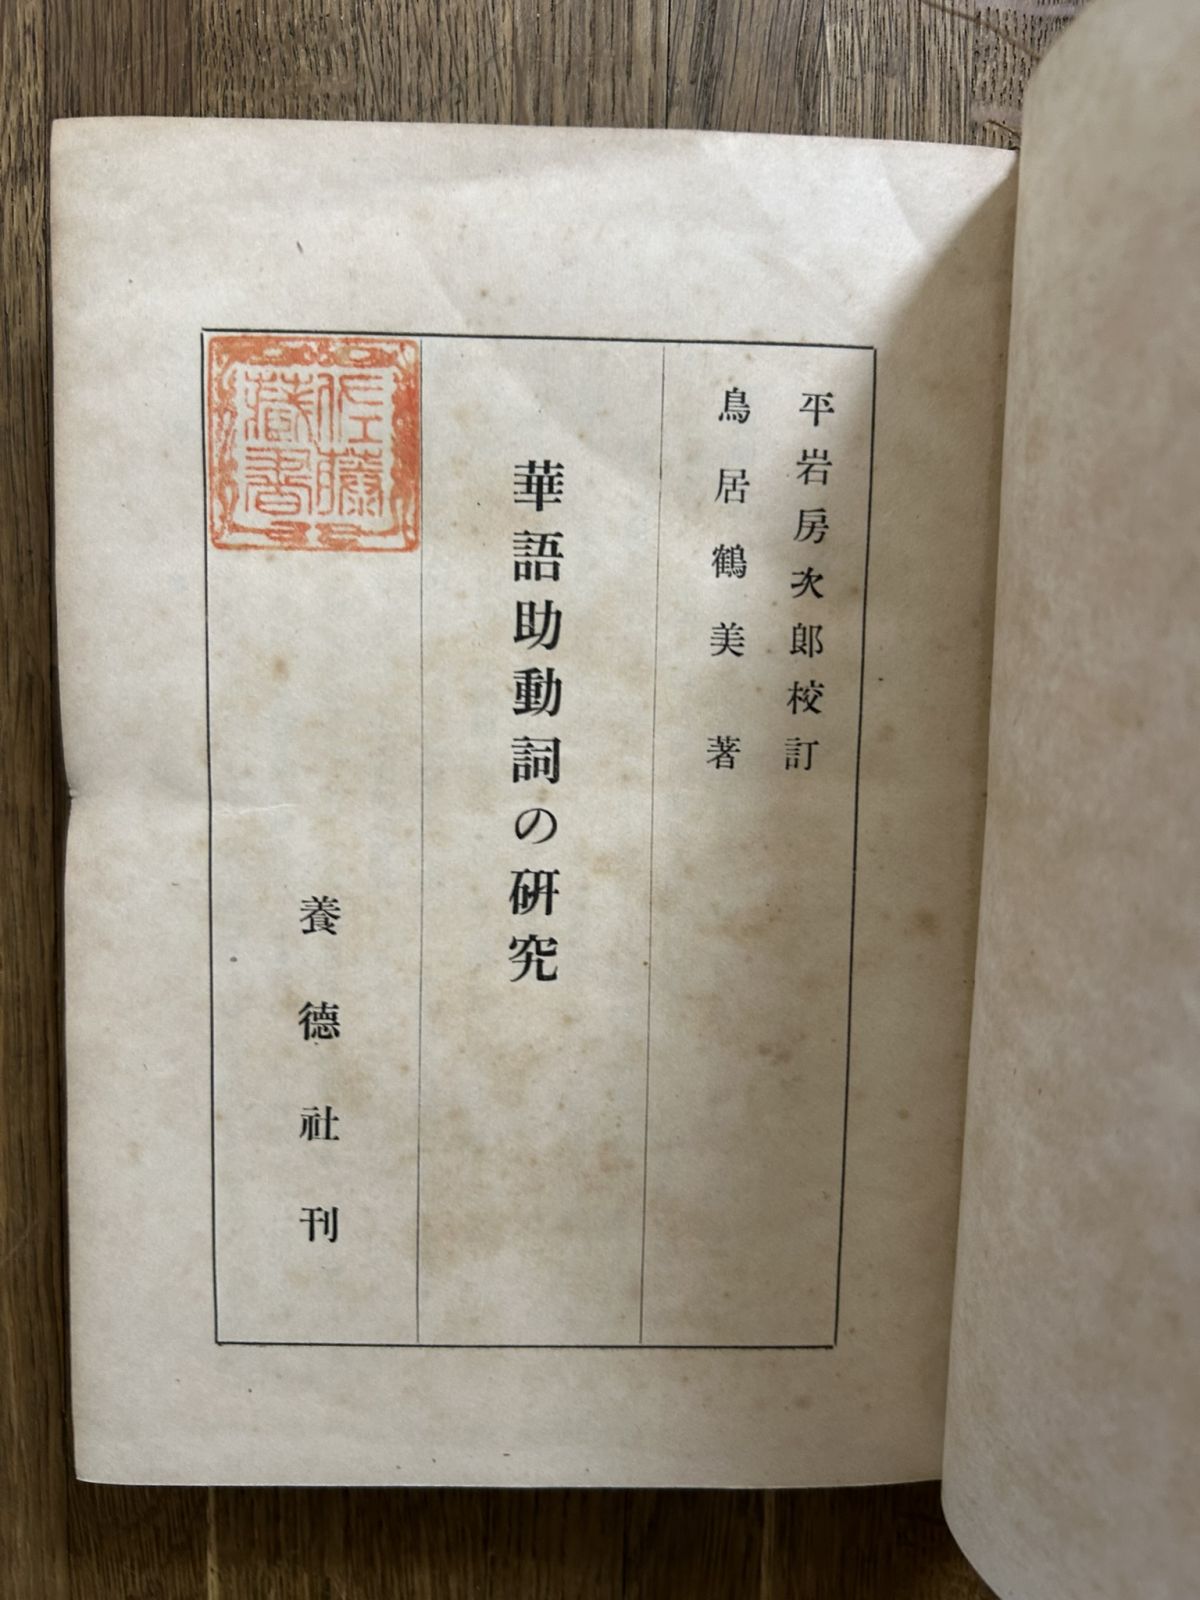 平岩房次郎校訂
鳥居鶴美著
華語助動詞の研究
佐藤
藏書
養德社刊